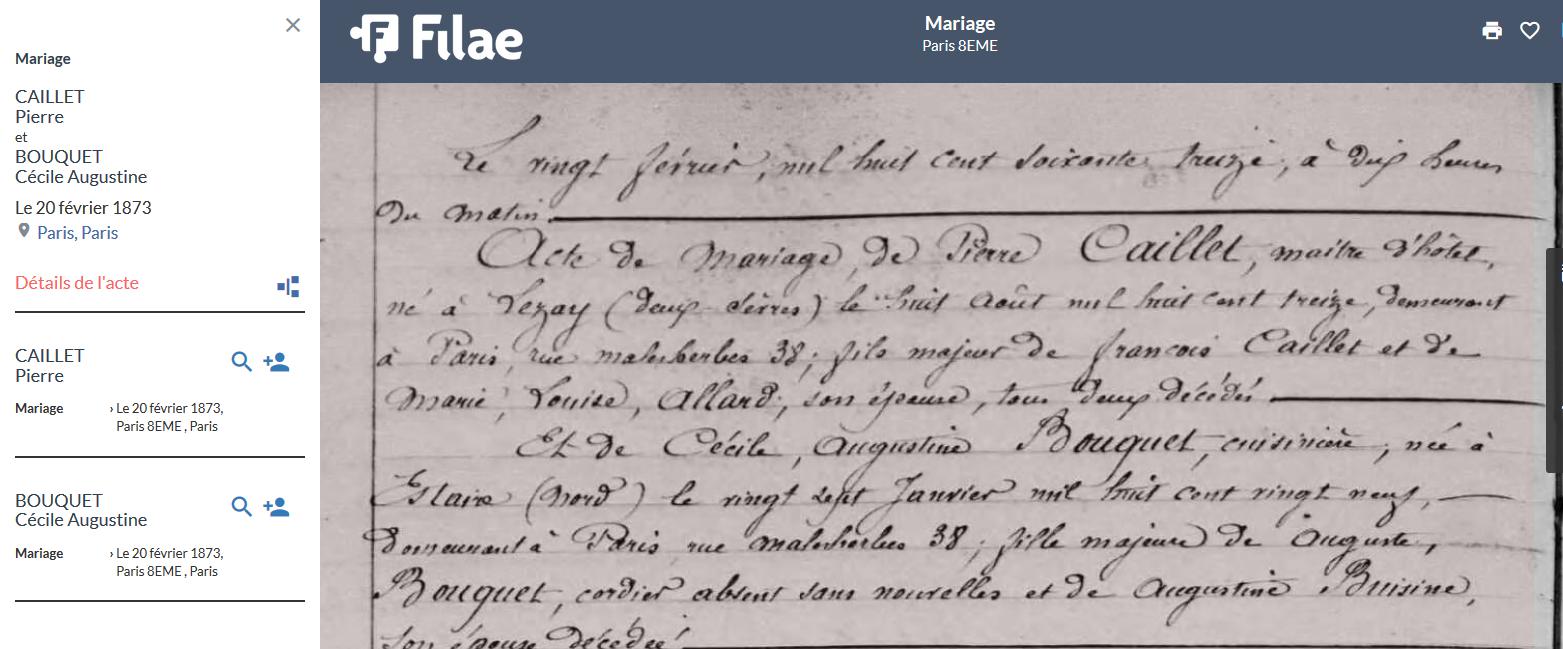 Mariage
CAILLET
Pierre
et
BOUQUET
Cécile Augustine
Le 20 février 1873
Paris, Paris
Détails de l'acte
CAILLET
Pierre
Mariage › Le 20 février 1873,
Paris 8EME , Paris
BOUQUET
Cécile Augustine
Mariage › Le 20 février 1873,
Paris 8EME , Paris
Filae
Mariage
Paris 8EME
Le vingt février, mil huit cent soixante treize, à dix heures
du matin.
Acte de Mariage, de Pierre Caillet, maître d'hôtel,
né à Lezay (deux-Sèvres) le huit Août mil huit cent treize, demeurant
à Paris, rue malesherbes 38; fils majeur de françois Caillet et de
Marie, Louise, Allard, son épouse, tous deux décédés
Et de Cécile, Augustine Bouquet, cuisinière, née à
Estaire (Nord) le vingt sept Janvier mil huit cent vingt neuf,
demeurant à Paris rue malesherbes 38; fille majeure de Auguste,
Bouquet, cordier absent sans nouvelles et de Augustine Buisine,
son épouse décédée